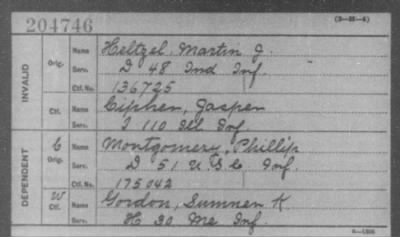 204746
(3—25—4)
INVALID
Orig.
Name Heltzel, Martin J.
Serv. D 48 Ind Inf.
Ctf. No. 136725
Ctf.
Name Ciphen, Jasper
Serv. I 110 Ill Inf.
DEPENDENT
C
Orig.
Name Montgomery, Phillip
Serv. D 51 U.S.C Inf.
Ctf. No. 175042
W
Ctf.
Name Gordon, Sumner K
Serv. H 30 Me Inf.